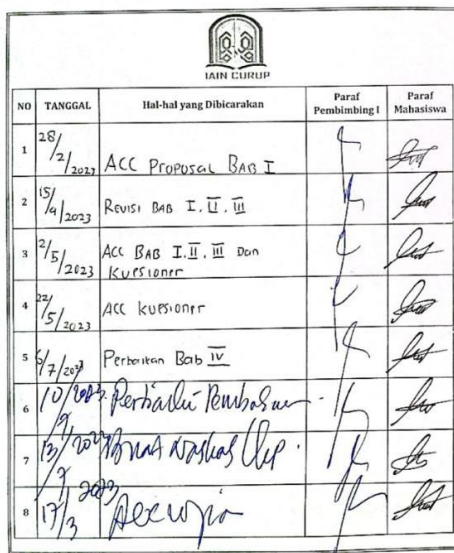 IAIN CURUP
NO TANGGAL Hal-hal yang Dibicarakan Paraf Pembimbing I Paraf Mahasiswa
1 28/2/2023 ACC Proposal BAB I
2 15/4/2023 REVISI BAB I. II. III
3 2/5/2023 ACC BAB I. II. III Dan
Kuesioner
4 22/5/2023 ACC Kuesioner
5 /7/2023 Perbaikan Bab IV
6 10/2023
7 13/2023
8 17/2023 Acc